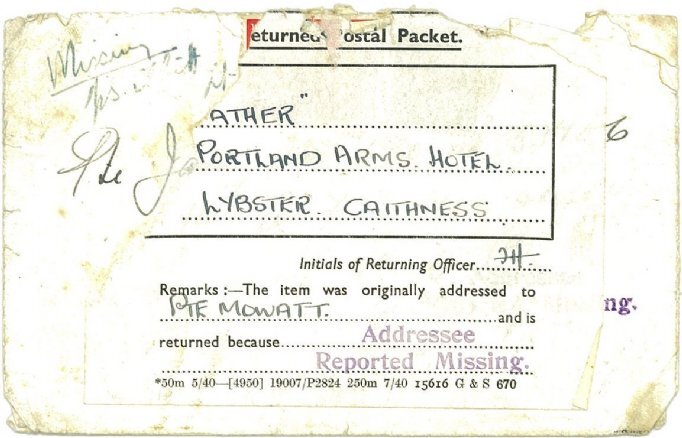 eturned Postal Packet.
Missing
ATHER"
Pte Ja
PORTLAND ARMS. HOTEL.
LYBSTER. CAITHNESS
Initials of Returning Officer
Remarks :—The item was originally addressed to
PTE MOWATT. and is
ng.
returned because Addressee
Reported Missing.
*50m 5/40—[4950] 19007/P2824 250m 7/40 15616 G & S 670